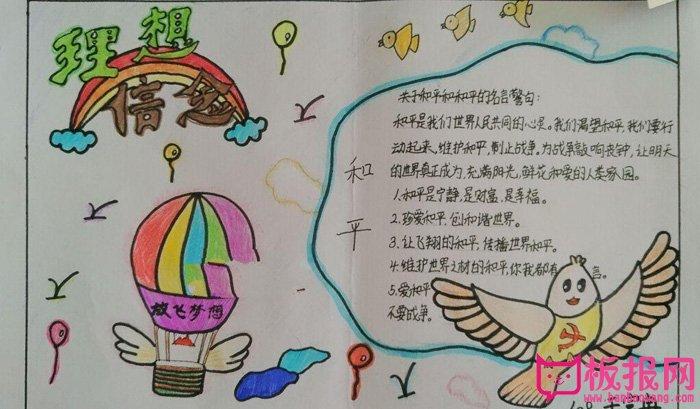 理想
信念
放飞梦想
和平
关于和平和和平的名言警句:
和平是我们世界人民共同的心灵。我们渴望和平,我们要行
动起来,维护和平,制止战争。为战争敲响丧钟,让明天
的世界真正成为,充满阳光,鲜花和爱的人类家园。
1.和平是宁静,是财富,是幸福。
2.珍爱和平,创和谐世界。
3.让飞翔的和平,传播世界和平。
4.维护世界之林的和平,你我都有
言。
5.爱和平
不要战争。
板报网
www.banbaowang.com